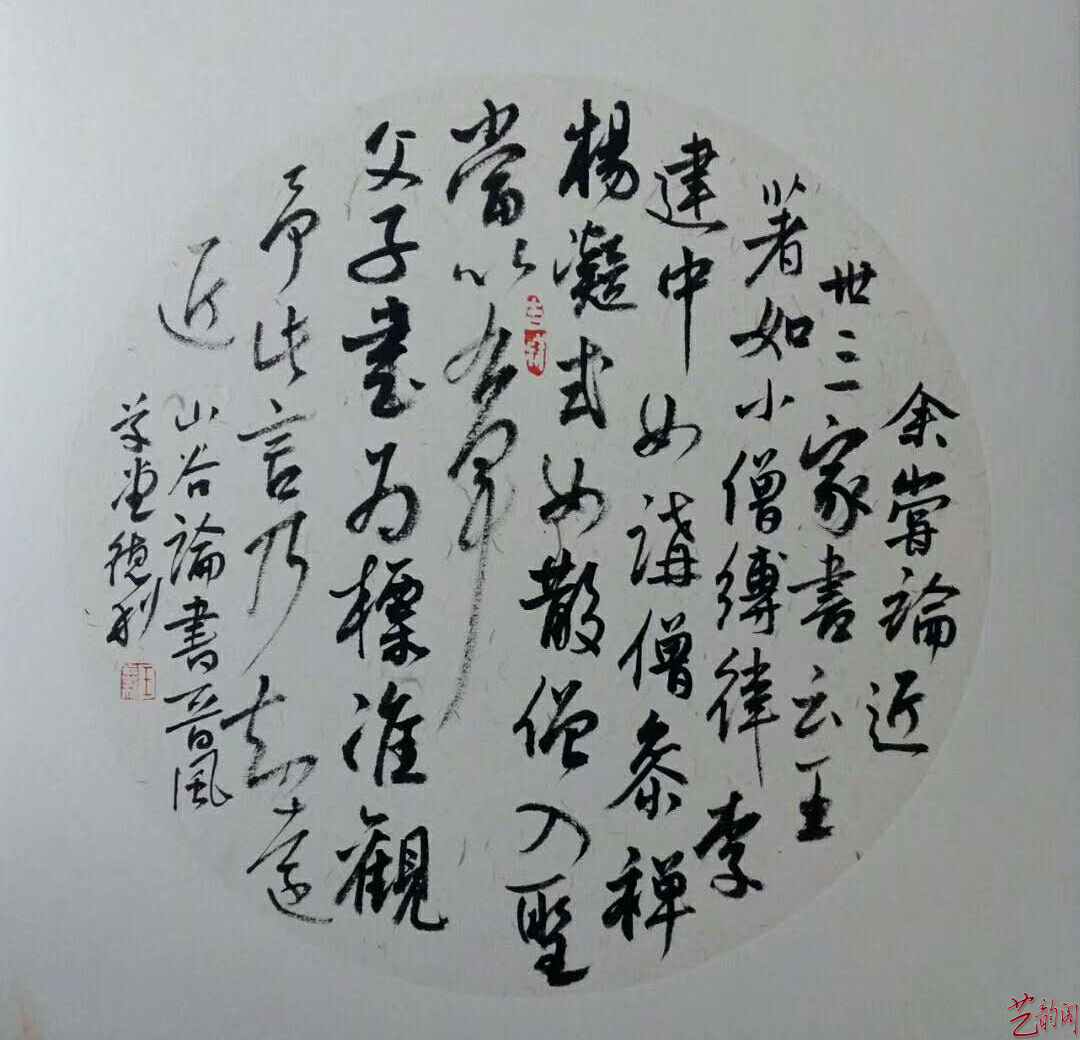 余嘗論近
世三家書云王
著如小僧縛律李
建中如講僧參禪
楊凝式如散僧入聖
當以右軍
父子書為標准觀
予此言乃知遠
近
山谷論書晉風
草堂德利
艺韵阁